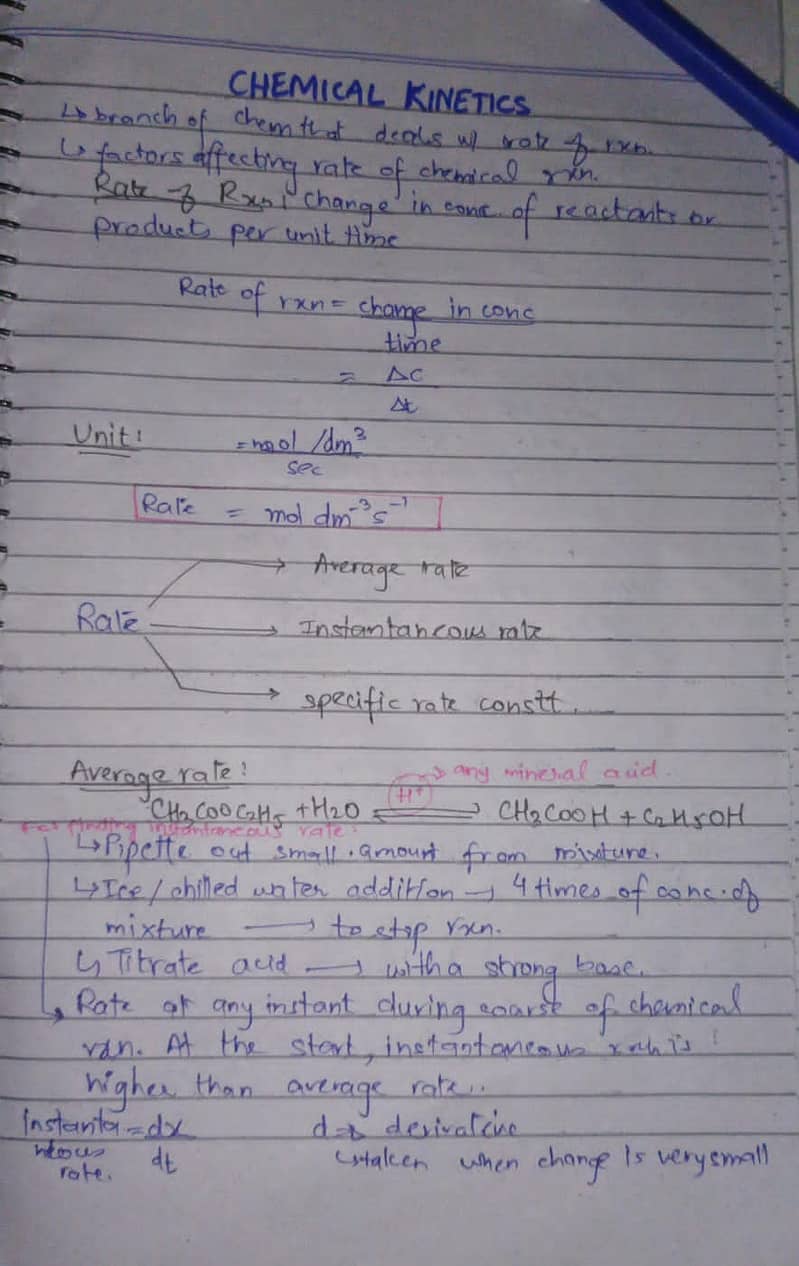 CHEMICAL KINETICS
↳ branch of chem that deals w/ rate of rxn.
↳ factors affecting rate of chemical rxn.
Rate of Rxn: change in conc. of reactants or
products per unit time
Rate of rxn = change in conc
time
= ΔC
Δt
Unit: = mol /dm³
sec
Rate = mol dm⁻³s⁻¹
Average rate
Rate → Instantaneous rate
specific rate constt.
Average rate: → any mineral acid.
CH₃COOC₂H₅ + H₂O ⇌ CH₃COOH + C₂H₅OH
H⁺
For finding instantaneous rate:
↳ Pipette out small amount from mixture.
↳ Ice / chilled water addition → 4 times of conc. of
mixture → to stop rxn.
↳ Titrate acid → with a strong base.
→ Rate at any instant during coarse of chemical
rxn. At the start, instantaneous rate is
higher than average rate..
Instanta = dx d → derivative
neous dt ↳ taken when change is very small
rate.